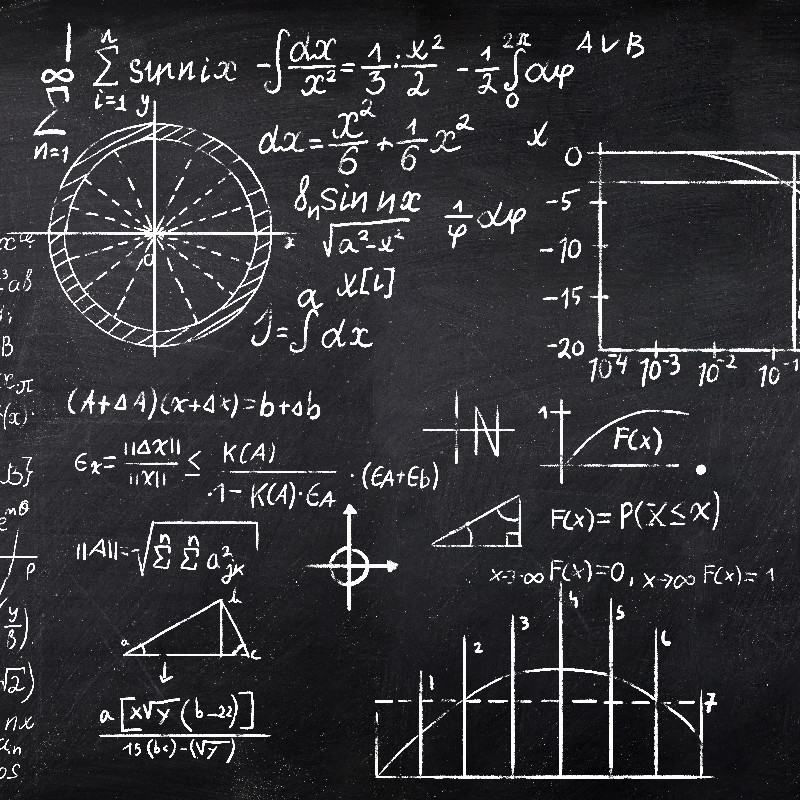 n
∞ ∑ sinnix -∫dx/x² = 1/3 · x²/2 - 1/2 ∫ dφ A∨B
i=1 y 2π 0
∑
n=1
dx = x²/6 + 1/6 x²
x
δₙ sin nx
√a²-x²
1/φ dφ
0
x[i]
a
J=∫ dx
0
-5
-10
-15
-20
10⁻⁴ 10⁻³ 10⁻² 10⁻¹
³ab
B
π
(x)
b}
e^nθ
ρ
y/B)
√2)
nx
aₙ
os
(A+ΔA)(x+Δx)=b+Δb
ϵx= ||Δx||/||x|| ≤ K(A)/1-K(A)·ϵA · (ϵA+ϵb)
||A||=√∑ⁿ ∑ⁿ a²jk
N
1
F(x)
F(x)= P(X≤x)
x→-∞ F(x)=0, x→∞ F(x)=1
a b c
a[x√y (b-22)]
15(bc)-(√7)
1 2 3 4 5 6 7